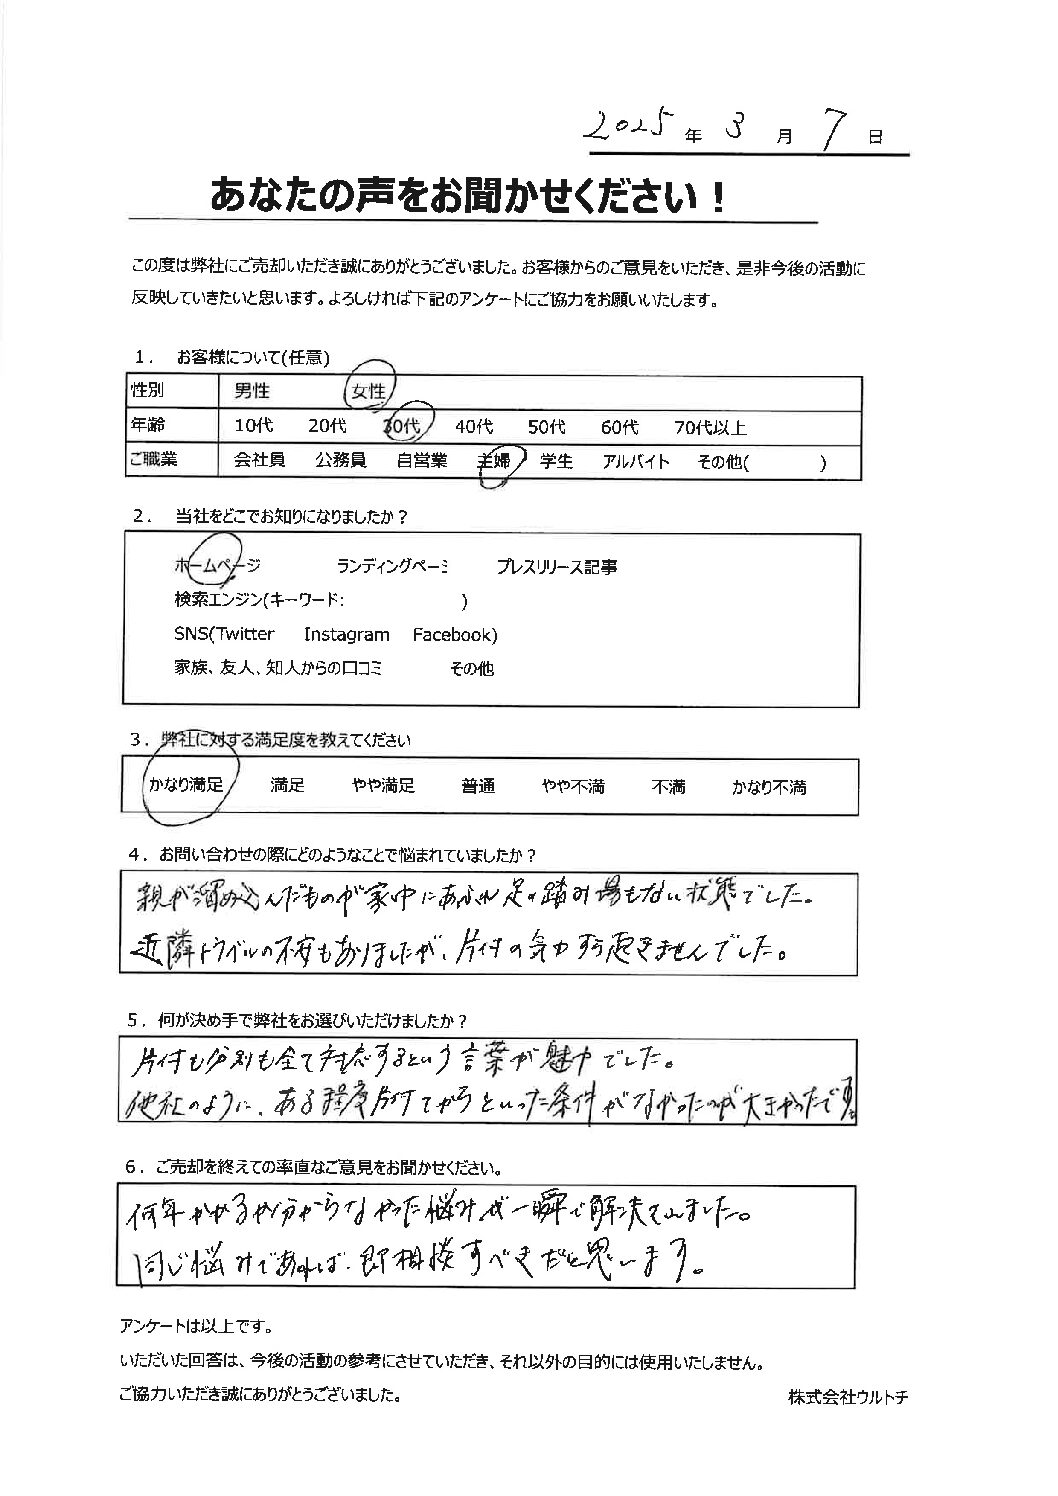 2025年 3月 7日
あなたの声をお聞かせください！
この度は弊社にご売却いただき誠にありがとうございました。お客様からのご意見をいただき、是非今後の活動に
反映していきたいと思います。よろしければ下記のアンケートにご協力をお願いいたします。
１． お客様について(任意)
性別 男性 女性
年齢 10代 20代 30代 40代 50代 60代 70代以上
ご職業 会社員 公務員 自営業 主婦 学生 アルバイト その他( )
２． 当社をどこでお知りになりましたか？
ホームページ ランディングページ プレスリリース記事
検索エンジン(キーワード: )
SNS(Twitter Instagram Facebook)
家族、友人、知人からの口コミ その他
３．弊社に対する満足度を教えてください
かなり満足 満足 やや満足 普通 やや不満 不満 かなり不満
４．お問い合わせの際にどのようなことで悩まれていましたか？
親が溜め込んだものが家中にあふれ足の踏み場もない状態でした。
近隣トラブルの不安もありましたが、片付の気力すら起きませんでした。
５．何が決め手で弊社をお選びいただけましたか？
片付も分別も全て対応するという言葉が魅力でした。
他社のように、ある程度片付てからといった条件がなかったのが大きかったです。
６．ご売却を終えての率直なご意見をお聞かせください。
何年かかるか分からなかった悩みが一瞬で解決てしました。
同じ悩みであれば、即相談すべきだと思います。
アンケートは以上です。
いただいた回答は、今後の活動の参考にさせていただき、それ以外の目的には使用いたしません。
ご協力いただき誠にありがとうございました。
株式会社ウルトチ